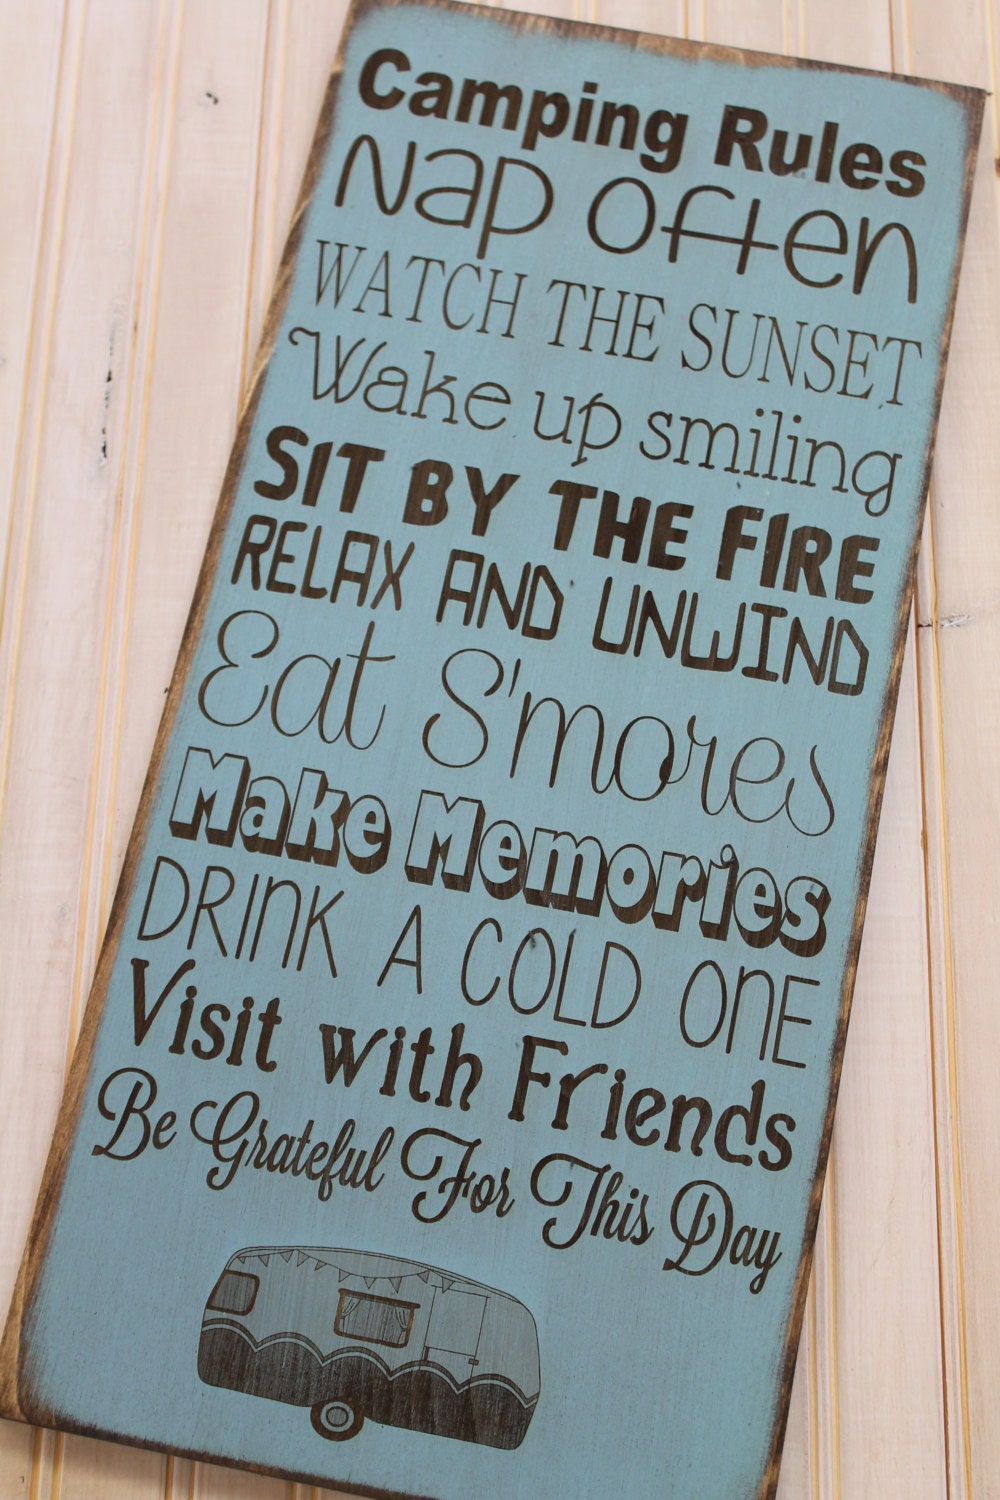 Camping Rules
Nap Often
WATCH THE SUNSET
Wake up smiling
SIT BY THE FIRE
RELAX AND UNWIND
Eat S'mores
Make Memories
DRINK A COLD ONE
Visit with Friends
Be Grateful For This Day